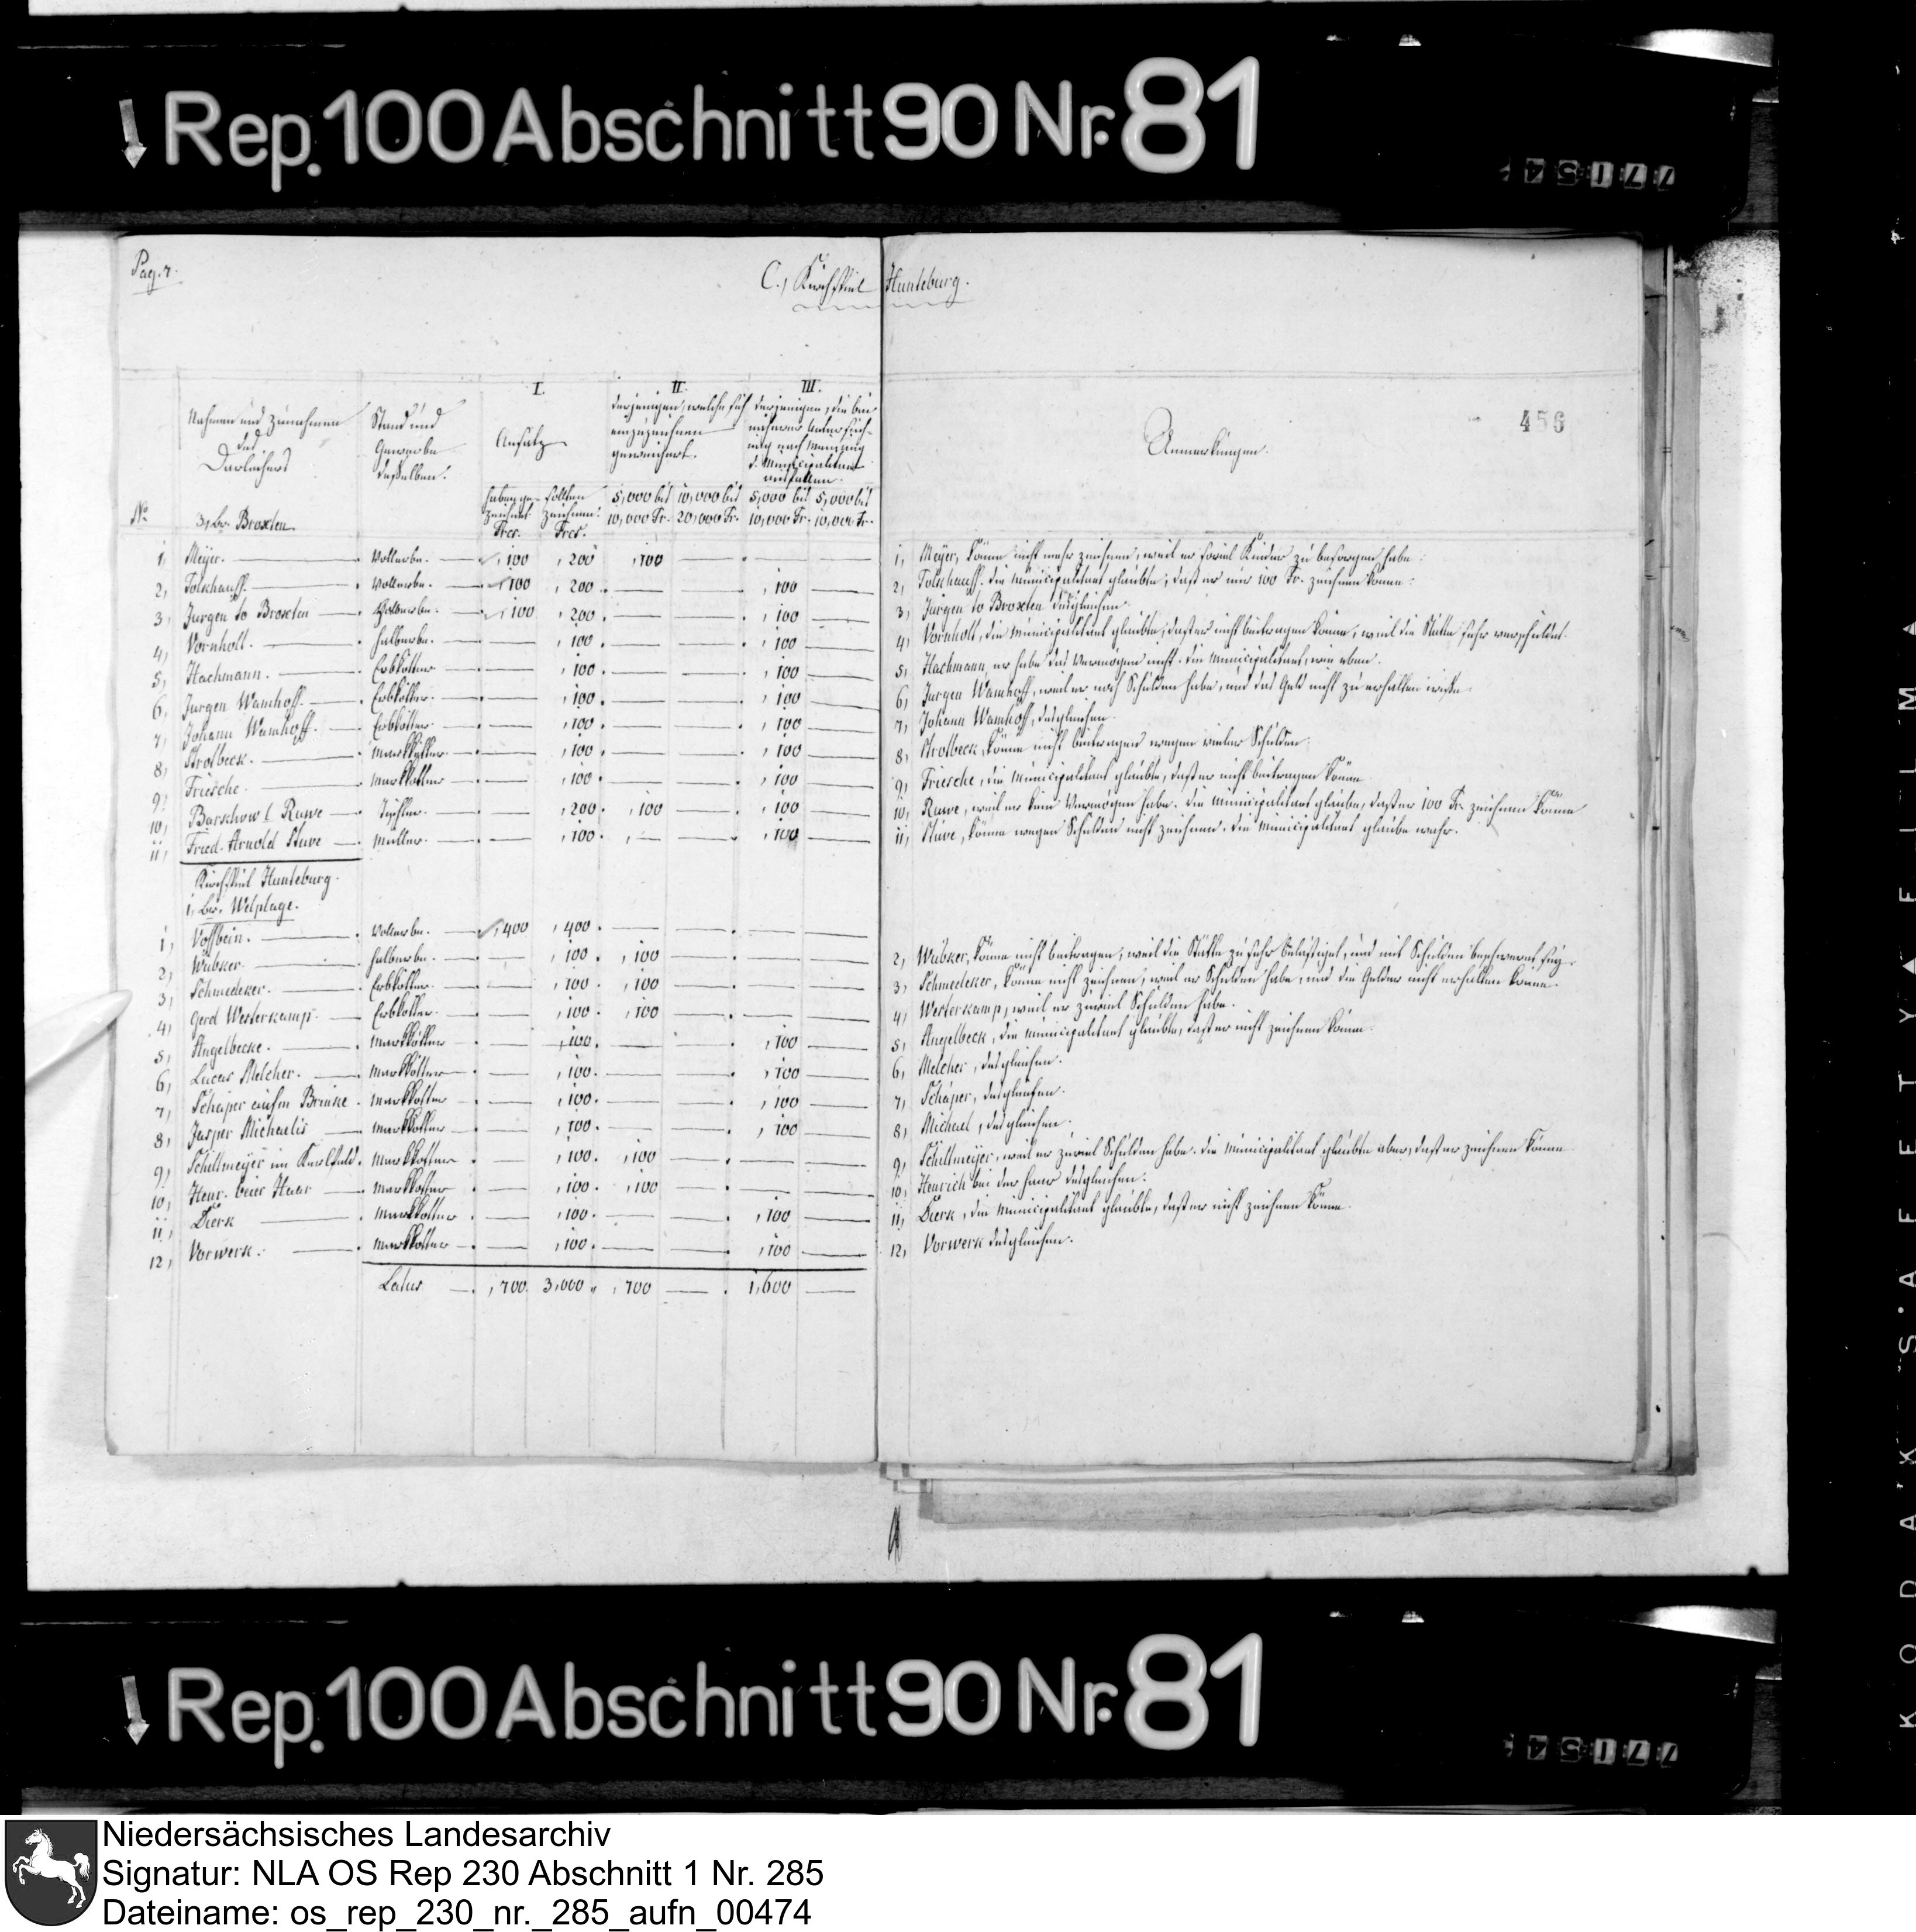 Rep. 100 Abschnitt 90 Nr. 81
77154
Pag. 7.
C., Kirchspiel Hunteburg.
456
Nahmen und Zunahmen des Darleihers
Stand und Gewerbe desselben.
I. Ansatz
II. derjenigen, welche sich einzuzeichnen geweigert.
III. derjenigen, die bei näherer Untersuchung nach Meinung d. Municipalitaet
Anmerkungen.
No.
3, Br. Broxten.
haben gezeichnet Frcs.
sollten zeichnen Frcs.
5,000 bis 10,000 Fr.
10,000 bis 20,000 Fr.
5,000 bis 10,000 Fr.
5,000 bis 10,000 Fr.
1, Meyer. Vollerbe. 100 200 100
2, Tolckhauff. Vollerbe. 100 200 100
3, Jurgen to Broxten Halberbe. 100 200 100
4, Vornholt. Halberbe. 100 100
5, Hachmann. Erbkötter 100 100
6, Jurgen Wamhoff. Erbkötter 100 100
7, Johann Wamhoff. Erbkötter 100 100
8, Strotbeck. Markkötter 100 100
9, Friesche. Markkötter 100 100
10, Barschow l Rawe Tischler. 200 100 100
11, Fried. Arnold Stuve Müller. 100 100
1, Meyer, könne nicht mehr zeichnen, weil er soviel Kinder zu besorgen habe.
2, Tolckhauff. die Municipalitaet glaubte, daß er nur 100 Fr. zeichnen könne.
3, Jurgen to Broxten desgleichen.
4, Vornholt, die Municipalitaet glaubte, daß er nicht beitragen könne, weil die Stätte sehr verschuldet.
5, Hachmann, er habe das Vermögen nicht. die Municipalitaet, wie oben.
6, Jurgen Wamhoff, weil er noch Schulden habe, und das Geld nicht zu erhalten wisse.
7, Johann Wamhoff, desgleichen.
8, Strotbeck, könne nicht beitragen wegen vieler Schulden.
9, Friesche, die Municipalitaet glaubte, daß er nicht beitragen könne.
10, Rawe, weil er kein Vermögen habe. die Municipalitaet glaube, daß er 100 Fr. zeichnen könne.
11, Stuve, könne wegen Schulden nicht zeichnen. die Municipalitaet glaube wahr.
Kirchspiel Hunteburg.
1, Br. Welplage.
1, Vossbein. Vollerbe. 400 400
2, Wübker. Halberbe. 100 100
3, Schmedeker. Erbkötter 100 100
4, Gerd Westerkamp. Erbkötter 100 100
5, Angelbecke. Markkötter 100 100
6, Lucas Melcher. Markkötter 100 100
7, Schaper aufm Brinke. Markkötter 100 100
8, Jasper Michaelis Markkötter 100 100
9, Schiltmeyer im Markkötter 100 100
10, Henr. beier Haar Markkötter 100 100
11, Dierk Markkötter 100 100
12, Vorwerk. Markkötter 100 100
Latus 700 3,000 700 1,600
2, Wübker, könne nicht beitragen, weil die Stätte zu sehr belästiget, und mit Schulden beschwert sey.
3, Schmedeker, könne nicht zeichnen, weil er Schulden habe, und die Gelder nicht erhalten könne.
4, Westerkamp, weil er zuviel Schulden habe.
5, Angelbeck, die Municipalitaet glaubte, daß er nicht zeichnen könne.
6, Melcher, desgleichen.
7, Schaper, desgleichen.
8, Michael, desgleichen.
9, Schiltmeyer, weil er zuviel Schulden habe. die Municipalitaet glaubte aber, daß er zeichnen könne.
10, Henrich bei der Haar desgleichen.
11, Dierk, die Municipalitaet glaubte, daß er nicht zeichnen könne.
12, Vorwerk desgleichen.
Rep. 100 Abschnitt 90 Nr. 81
77154
KODAK SAFETY FILM
Niedersächsisches Landesarchiv
Signatur: NLA OS Rep 230 Abschnitt 1 Nr. 285
Dateiname: os_rep_230_nr._285_aufn_00474